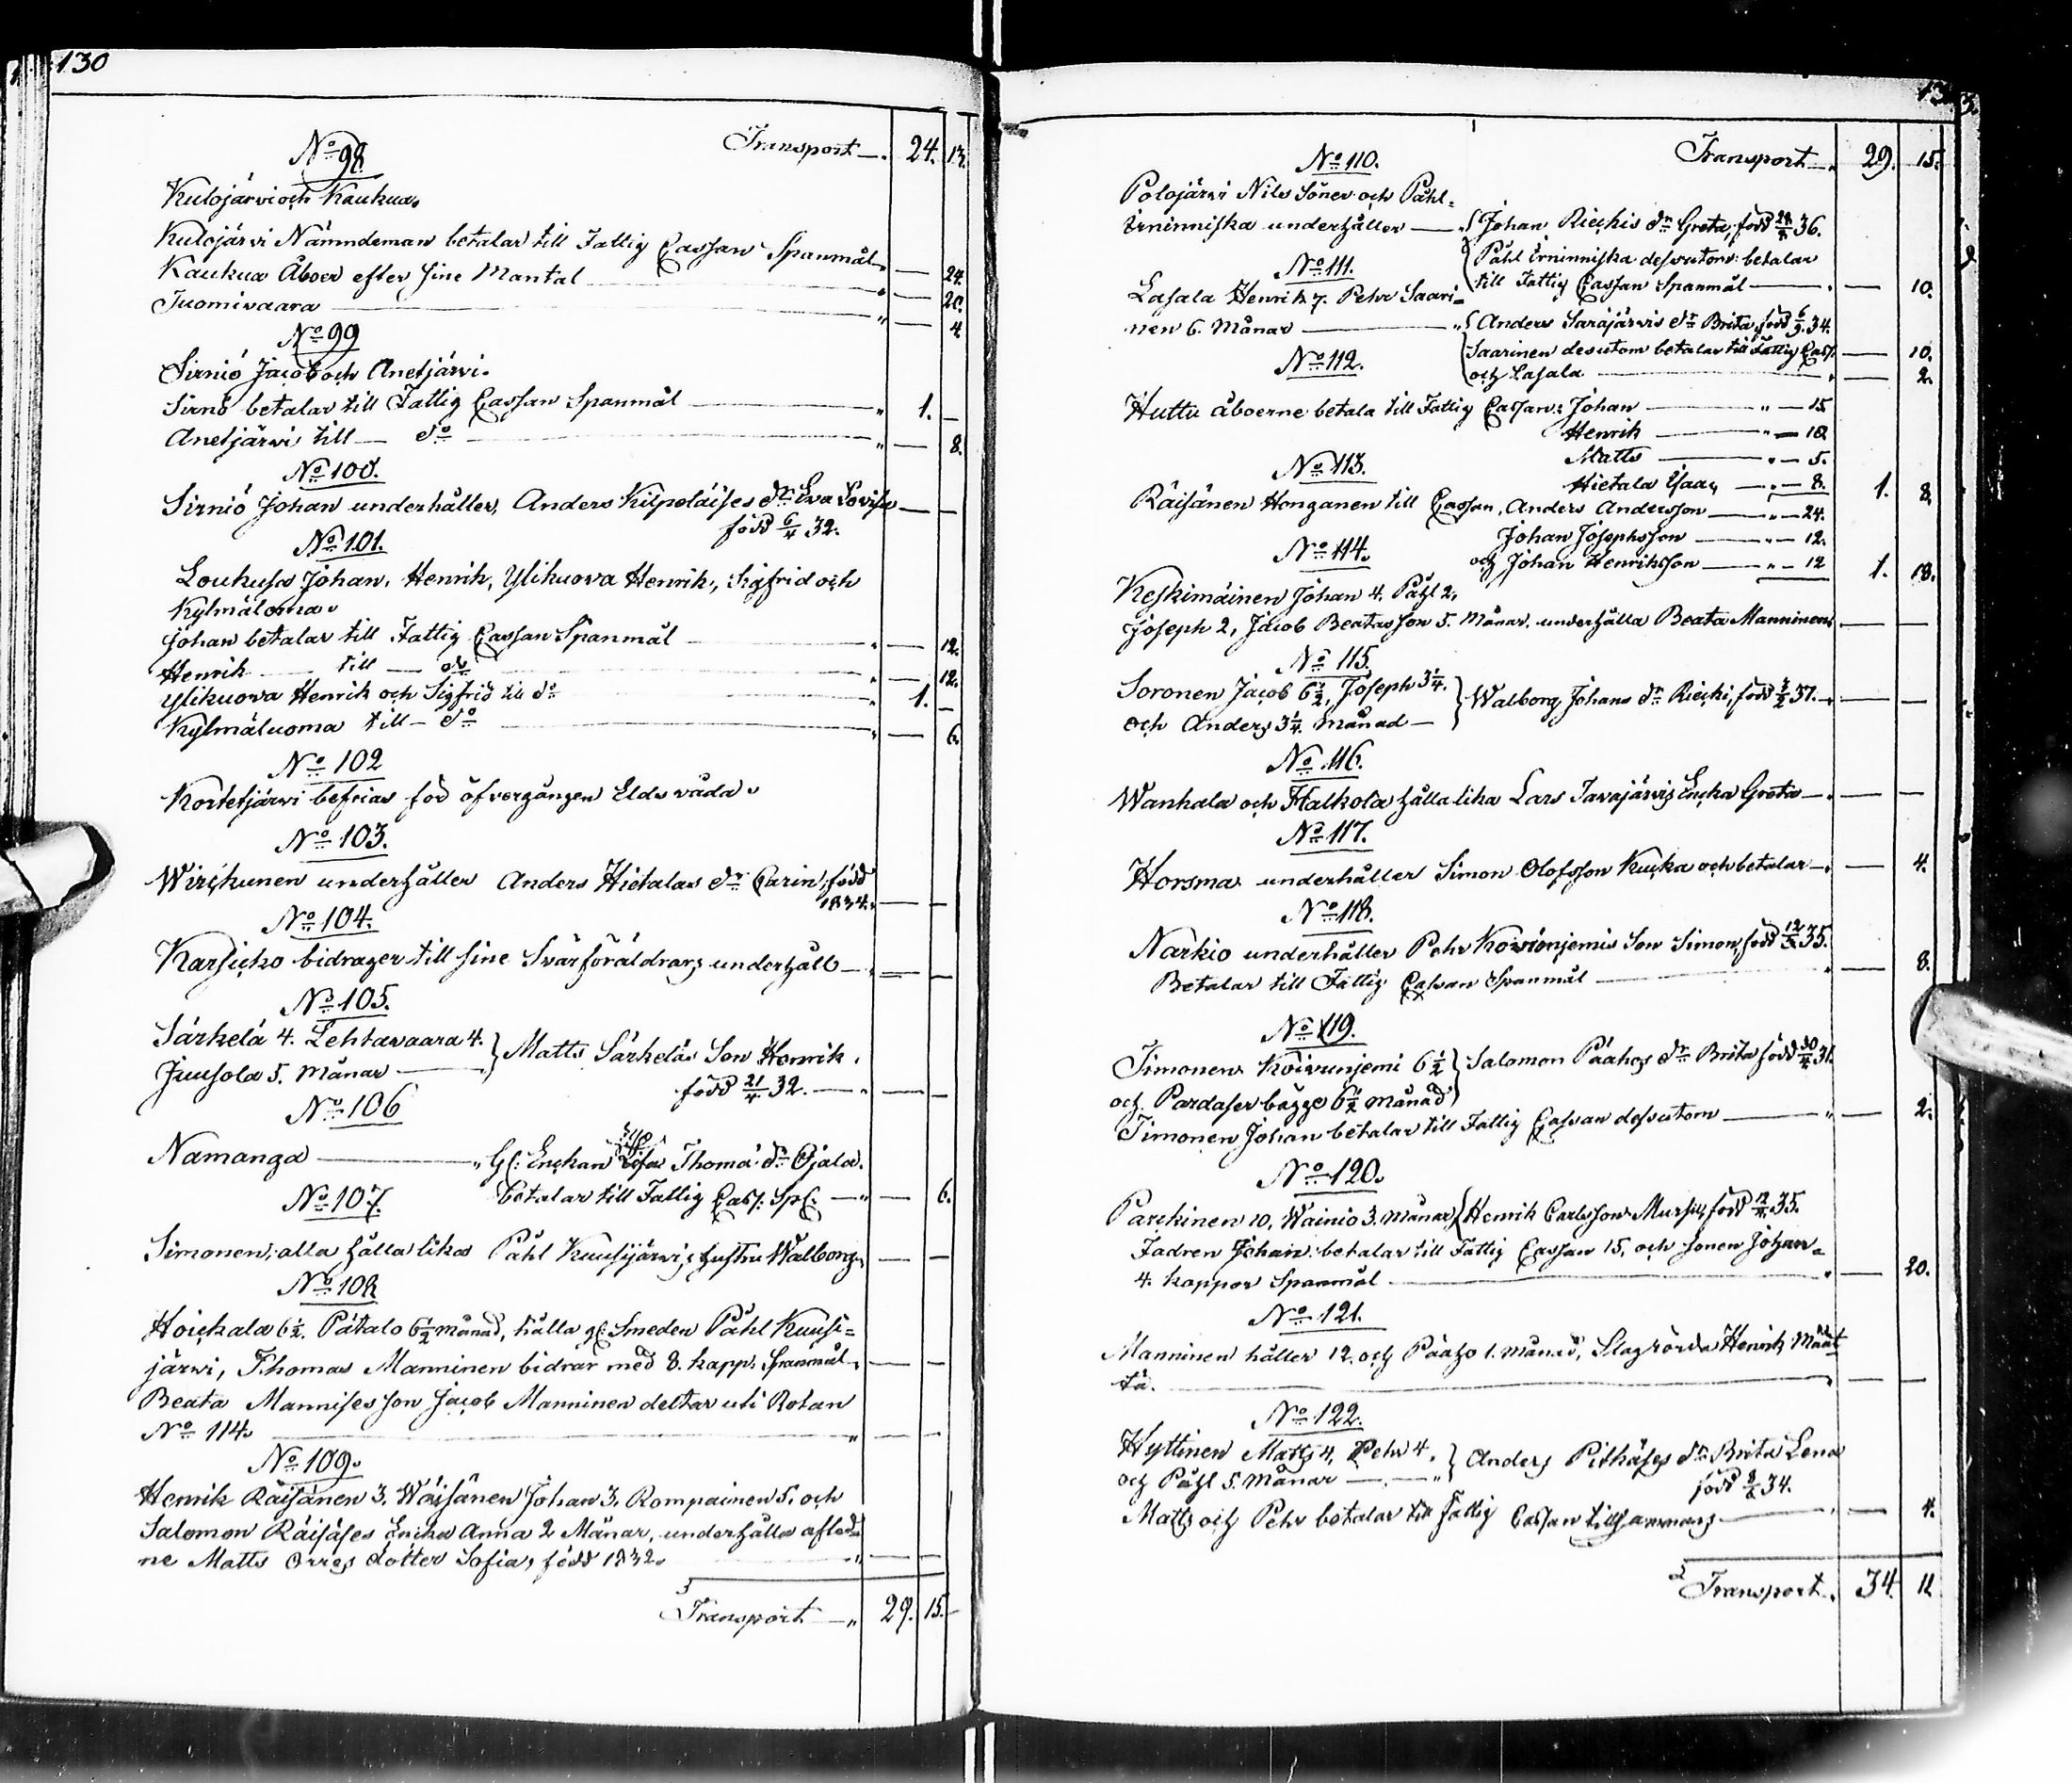 130
Transport —. 24. 13.
No 98.
Kulojärvi och Kaukua.
Kulojärvi Nämndeman betalar till Fattig Cassan Spanmål " — 24.
Kaukua Åboer efter sine Mantal " — 20.
Tuomivaara " — 4
No 99
Sirniö Jacob och Anetjärvi.
Sirnö betalar till Fattig Cassan Spanmål " 1. —
Anetjärvi till — do " — 8.
No 100.
Sirniö Johan underhåller, Anders Kilpeläises dr Eva Lovisa — —
född 6/4 32.
No 101.
Loukusa Johan, Henrik, Ylikuova Henrik, Sigfrid och
Kylmäloma.
Johan betalar till Fattig Cassan Spanmål " — 12.
Henrik — till — do " — 12.
Ylikuova Henrik och Sigfrid till do " 1. —
Kylmäluoma till — do " — 6.
No 102
Kortetjärvi befrias för öfvergången Eldsvåda.
No 103.
Wirckunen underhåller Anders Hietalas dr Carin, född
1834. — —
No 104.
Karsicko bidrager till sine Svärföräldrars underhåll — " — —
No 105.
Särkelä 4. Lehtavaara 4. } Matts Särkeläs Son Henrik.
Juusola 5. Månar — född 21/4 32. — " — —
No 106
Namanga — " Gl: Enckan Lisa Thoma dr Ojala.
betalar till Fattig Cass. Spl: — " — 6.
No 107.
Simonen, alla hålla lika Påhl Kuusijärvis hustru Walborg — —
No 108
Hoickala 6½. Pätalo 6½ månad, hålla gl: Smeden Påhl Kuusi=
järvi, Thomas Manninen bidrar med 8. kapp. Spanmål. — —
Beata Mannises son Jacob Manninen deltar uti Rotan
No 114. " — —
No 109.
Henrik Räisänen 3. Wäisänen Johan 3. Rompainen 5. och
Salomon Räisäses Encka Anna 2 Månar, underhålla afled=
ne Matts Orres dotter Sofia, född 1832. " — —
Transport — " 29. 15.
Transport —. 29. 15.
No 110.
Polojärvi Nils Söner och Påhl=
Irninniska underhåller — " { Johan Rieckis dr Greta, född 36.
Påhl Irninniska dessutom betalar
till Fattig Cassan Spanmål — " — 10.
No 111.
Lasala Henrik 7. Pehr Saari=
nen 6. Månar — " { Anders Sarajärvis dr Brita, född 6/9 34.
Saarinen desutom betalar till Fattig Cass. — 10.
och Lasala " — 2.
No 112.
Huttu åboerne betala till Fattig Cassan: Johan — " — 15
Henrik — " — 10
Matts — " — 5.
Hietala Isaac — " — 8. 1. 8.
No 113.
Räisänen Honganen till Cassan, Anders Andersson — " — 24.
Johan Josephsson — " — 12.
och Johan Henriksson — " — 12 1. 18.
No 114.
Keskimäinen Johan 4. Påhl 2,
Joseph 2, Jacob Beatasson 5. Månar. underhålla Beata Manninen — —
No 115.
Soronen Jacob 6½, Joseph 3¼. } Walborg Johans dr Riecki, född 37. — " — —
och Anders 3¼. Månad —
No 116.
Wanhala och Halkola hålla lika Lars Tavajärvis Encka Greta — " — —
No 117.
Horsma underhåller Simon Olofsson Kucka och betalar — " — 4.
No 118.
Närkio underhåller Pehr Koivonjemis Son Simon, född 35.
Betalar till Fattig Cassan Spanmål " — 8.
No 119.
Timonen Koivunjemi 6½ } Salomon Päähos dr Brita född 30/4 31.
och Pardaser bägge 6½ månad
Timonen Johan betalar till Fattig Cassan dessutom " — 2.
No 120.
Parckinen 10, Wainio 3. månar { Henrik Carlsson född 35.
Fadren Johan betalar till Fattig Cassan 15, och Sonen Johan
4. kappor Spanmål " — 20.
No 121.
Manninen håller 12. och Pääho 1. månad, Slagrörda Henrik Määt
tä. " — —
No 122.
Hyttinen Matts 4, Pehr 4. } Anders Pitkäses dr Brita Lena
och Påhl 5. Månar — " född 34.
Matts och Pehr betalar till Fattig Cassan tillsammans " — 4.
Transport. 34. 11